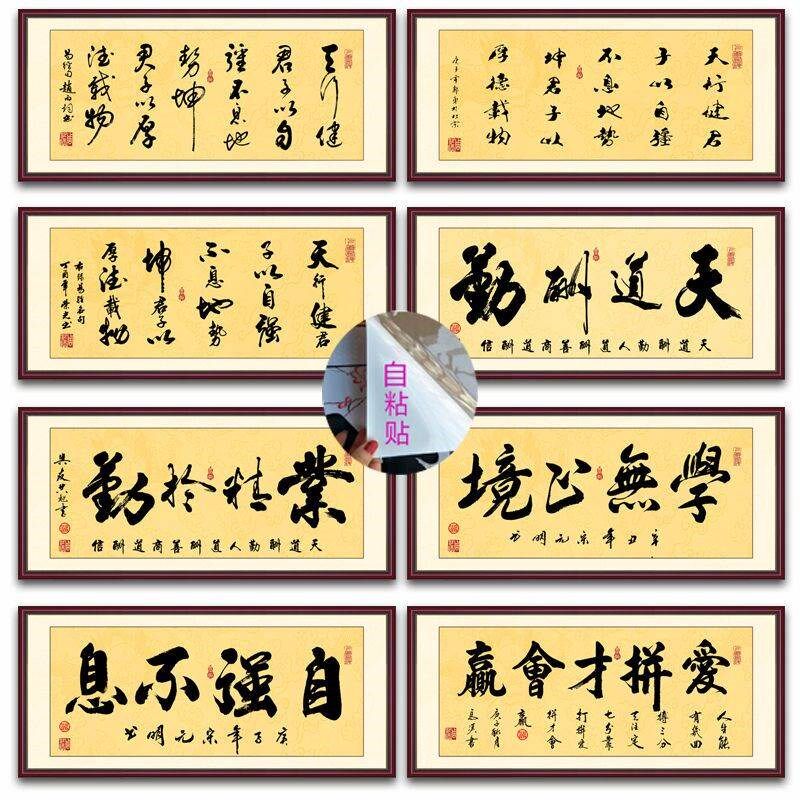 天行健
君子以自
强不息地
勢坤
君子以厚
德載物
天行健君
子以自强
不息地勢
坤君子以
厚德載物
天行健君
子以自强
不息地勢
坤君子以
厚德載物
天道酬勤
天道酬勤人道酬善商道酬信
自
粘
贴
業精於勤
天道酬勤人道酬善商道酬信
學無止境
辛丑年宗元明书
自强不息
庚子年宗元明书
愛拼才會贏
人生能
有幾回
搏三分
天注定
七分靠
打拼愛
拼才會
贏
庚子秋月